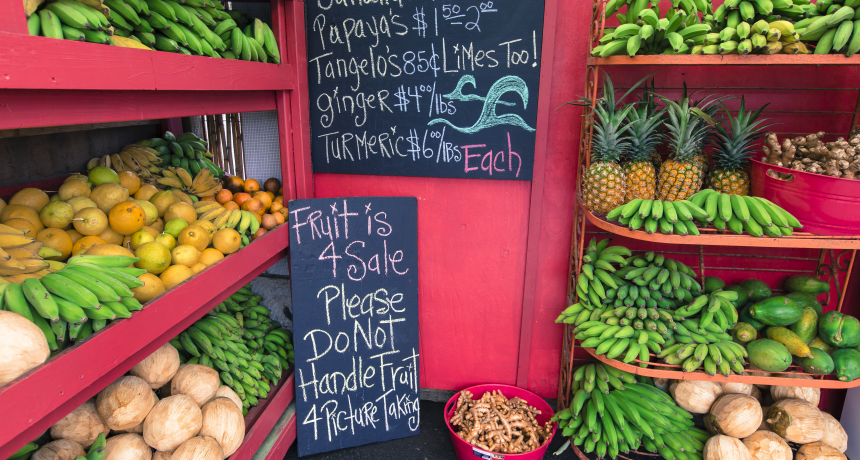 Papaya's $1⁵⁰-2⁰⁰
Tangelo's 85¢ Limes Too!
ginger $4⁰⁰/lbs
Turmeric $6⁰⁰/lbs Each
Fruit is
4 Sale
Please
Do Not
Handle Fruit
4 Picture Taking